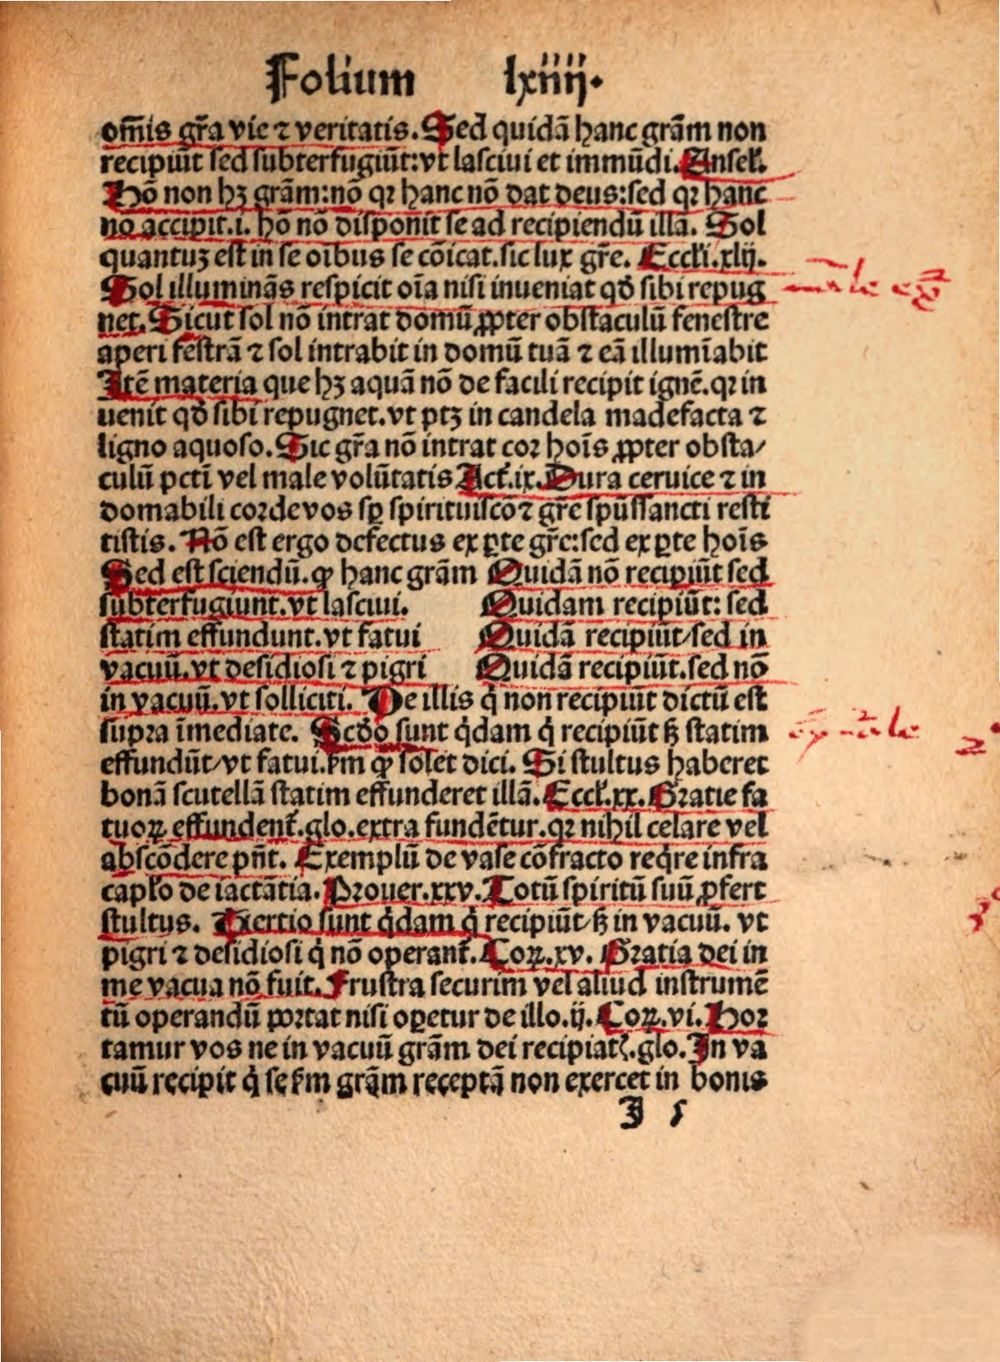 Folium lxiiij.
om̄is gr̄a vie ⁊ veritatis. Sed quidā hanc grām non
recipiūt sed subterfugiūt: vt lasciui et immūdi. Ansel̄.
Hō non hꝫ grām: nō qꝛ hanc nō dat deus: sed qꝛ hanc
no accipit .i. hō nō disponit se ad recipiendū illā. Sol
quantuꝫ est in se oībus se cōicat. sic lux gr̄e. Eccl̄i. xlij.
Sol illumināns respicit oīa nisi inueniat qd̄ sibi repug
net. Sicut sol nō intrat domū ꝓpter obstaculū fenestre
aperi fēstrā ⁊ sol intrabit in domū tuā ⁊ eā illumīabit
Itē materia que hꝫ aquā nō de facili recipit ignē. qꝛ in
uenit qd̄ sibi repugnet. vt ptꝫ in candela madefacta ⁊
ligno aquoso. Sic gr̄a nō intrat coꝛ hoīs ꝓpter obsta/
culū pctī vel male volūtatis Act̄. ix. Dura ceruice ⁊ in
domabili coꝛde vos sp̄ spirituiscō ⁊ gr̄e spūssancti resti
tistis. Nō est ergo defectus ex ꝑte gr̄e: sed ex ꝑte hoīs
Sed est sciendū. ꝙ hanc grām Quidā nō recipiūt sed
subterfugiunt. vt lasciui. Quidam recipiūt: sed
statim effundunt. vt fatui Quidā recipiūt/sed in
vacuū. vt desidiosi ⁊ pigri Quidā recipiūt. sed nō
in vacuū. vt solliciti. De illis q̇ non recipiūt dictū est
supꝛa īmediate. Scd̄o sunt q̇dam q̇ recipiūt ꝭꝫ statim
effundūt/vt fatui. km̄ ꝙ solet dici. Si stultus haberet
bonā scutellā statim effunderet illā. Eccl̄. xx. Gratie fa
tuoꝝ effundent̄. glo. extra fundētur. qꝛ nihil celare vel
abscōdere pn̄t. Exemplū de vase cōfracto req̇re infra
capl̄o de iactātia. Pꝛouer. xxv. Totū spiritū suū ꝓfert
stultus. Tertio sunt q̇dam q̇ recipiūt/ꝭꝫ in vacuū. vt
pigri ⁊ desidiosi q̇ nō operant̄. Coꝝ. xv. Gratia dei in
me vacua nō fuit. Frustra securim vel aliud instrumē
tū operandū poꝛtat nisi oꝑetur de illo. ij. Coꝝ. vi. Hoꝛ
tamur vos ne in vacuū grām dei recipiatꝭ. glo. In va
cuū recipit q̇ se km̄ grām receptā non exercet in bonis
I 5